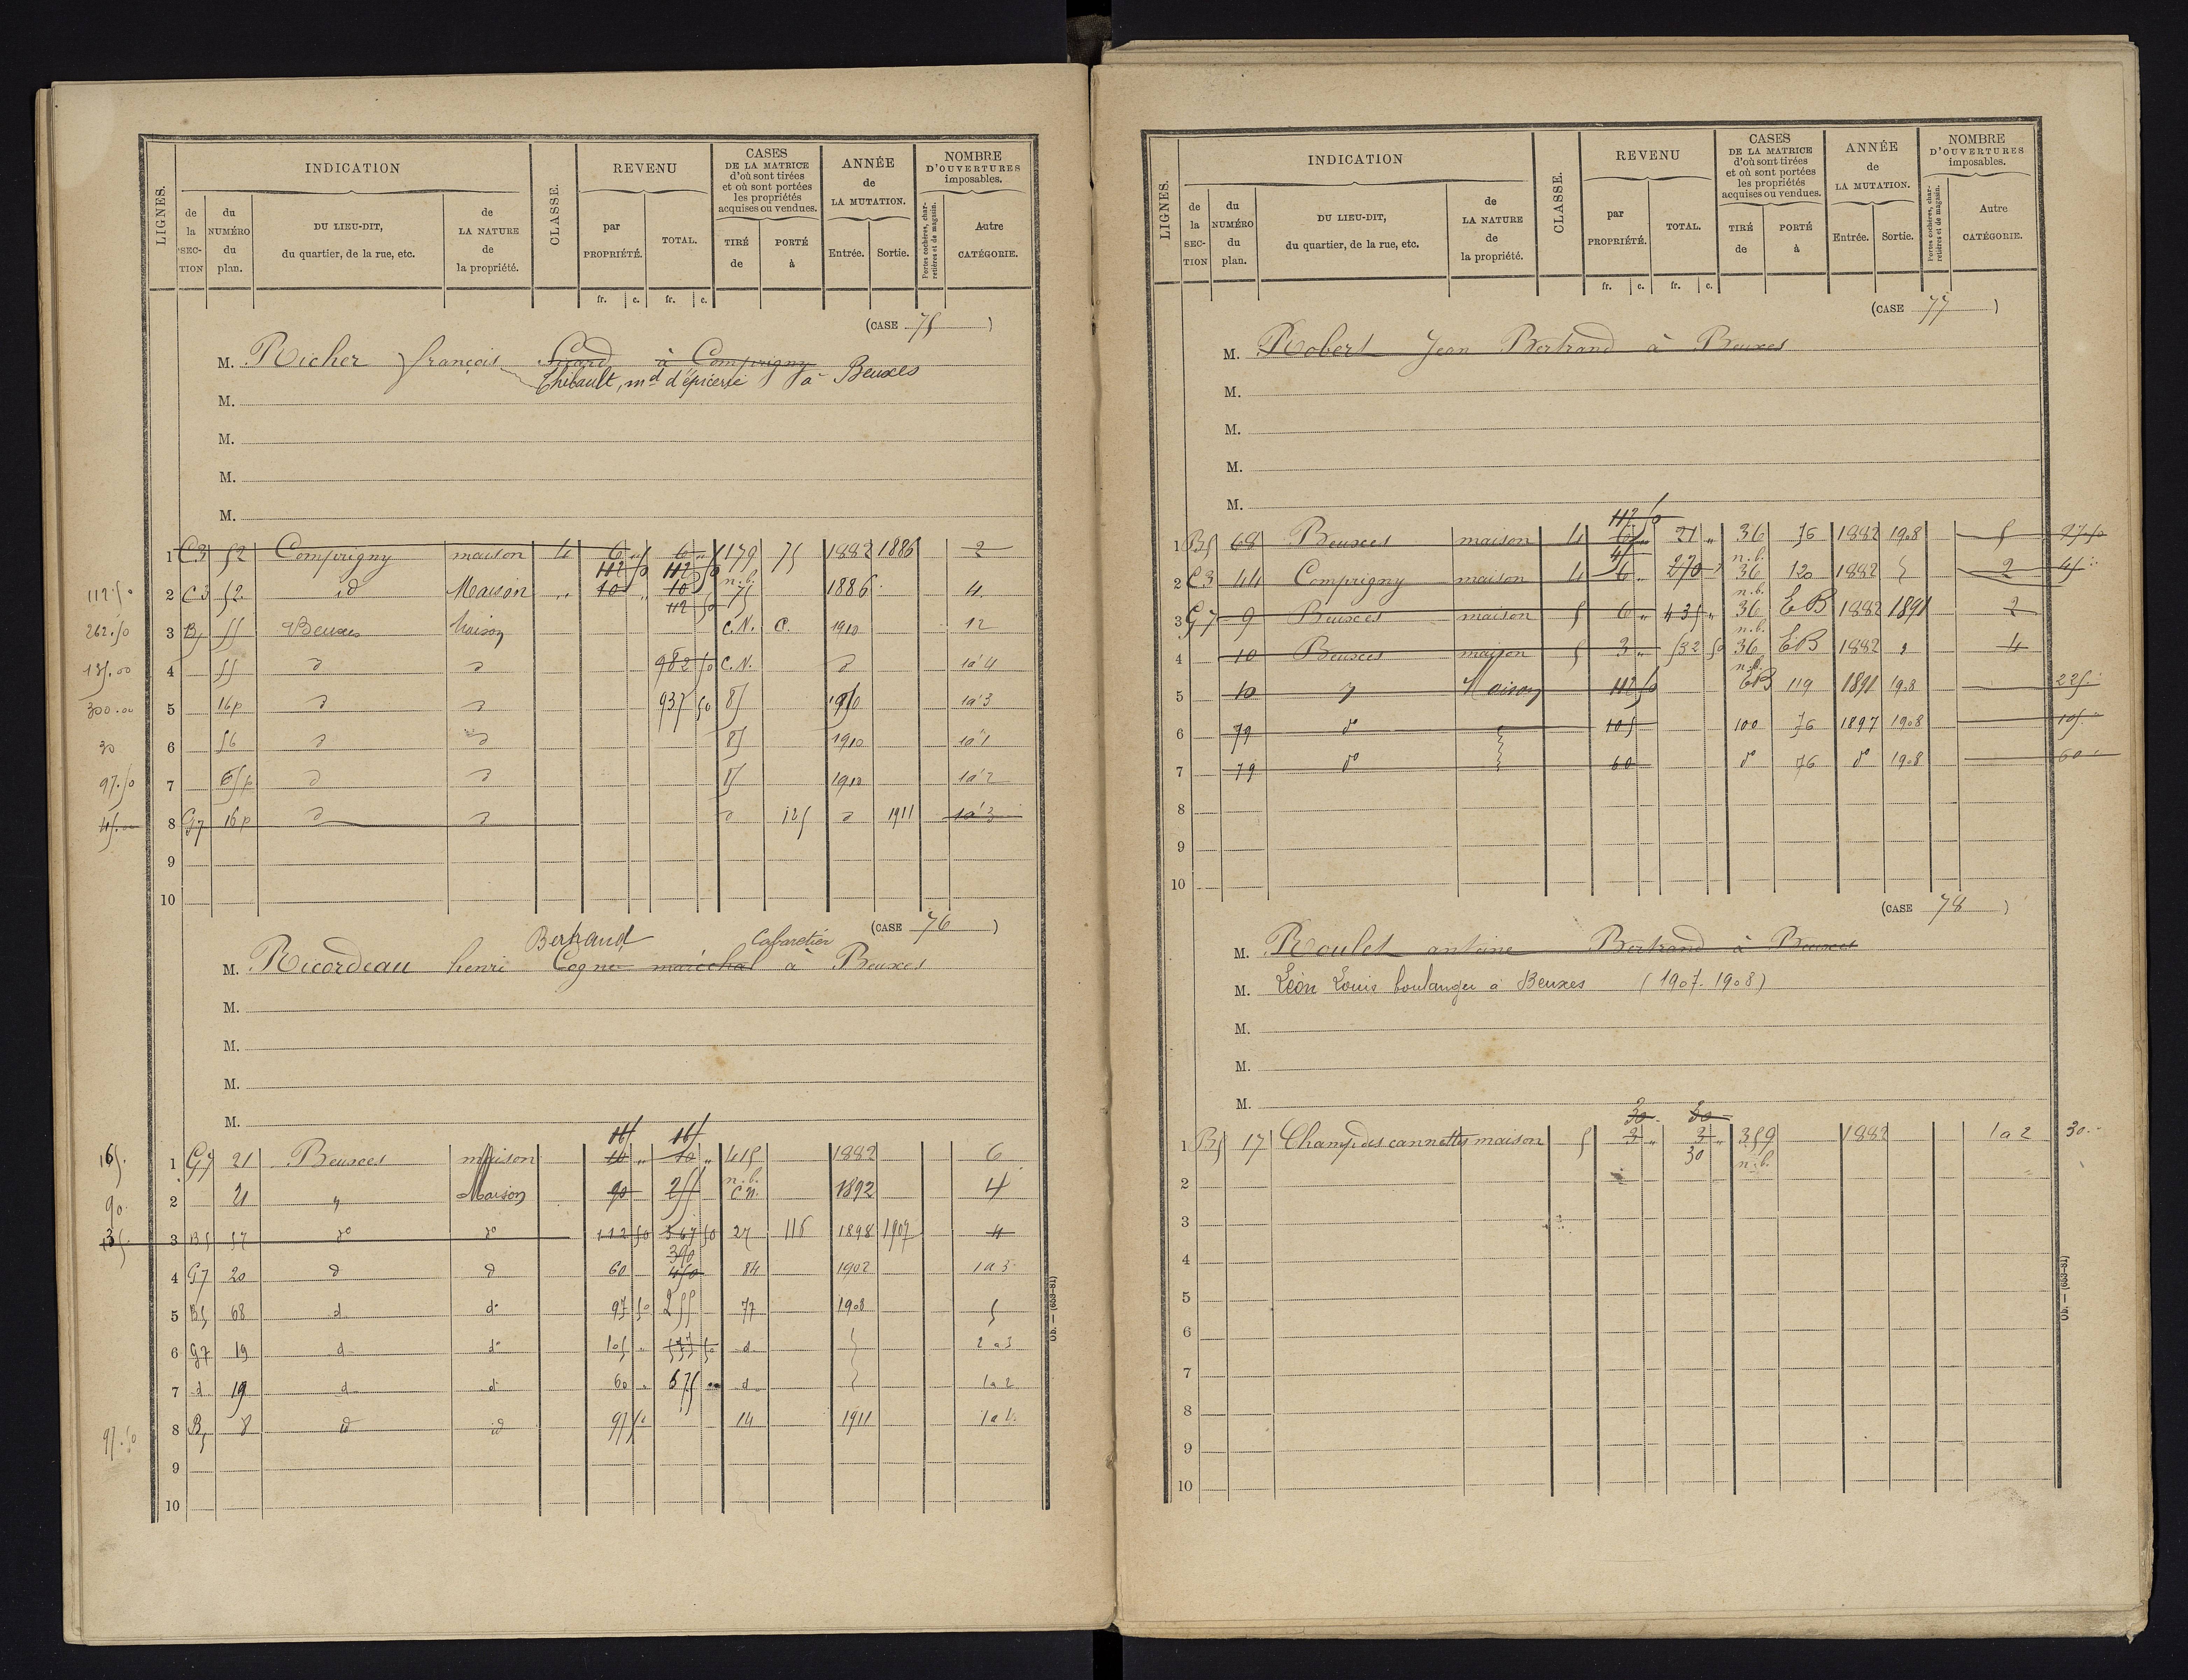 LIGNES. INDICATION CLASSE. REVENU CASES DE LA MATRICE d'où sont tirées et où sont portées les propriétés acquises ou vendues. ANNÉE de LA MUTATION. NOMBRE D'OUVERTURES imposables.
de la SECTION du NUMÉRO du plan. DU LIEU-DIT, du quartier, de la rue, etc. de LA NATURE de la propriété. par PROPRIÉTÉ. TOTAL. TIRÉ de PORTÉ à Entrée. Sortie. Portes cochères, charretières et de magasin. Autre CATÉGORIE.
fr. c. fr. c.
(CASE 75)
M. Richer françois Sicard à Comprigny
Thibault, md d'épicerie à Beuxes
M.
M.
M.
M.
1 C3 52 Comprigny maison 4 6 " 6 " 179 75 1882 1886 2
112 50 112 50 n.b.
112.50 2 C3 52 id Maison " 10 " 10 75 1886 4
112 50
262.50 3 B5 55 Beuxes Maison C.N. C. 1910 12
135.00 4 55 d d 982 50 C.N. d 1 à 4
300.00 5 16p d d 937 50 85 1910 1 à 3
30 6 56 d d 85 1910 1 à 1
97.50 7 65p d d 85 1910 1 à 2
45.00 8 G7 16p d d d 125 d 1911 1 à 3
9
10
(CASE 76)
Bertrand Cabaretier
M. Ricordeau henri Cogne maréchal à Beuxes
M.
M.
M.
M.
165 165
165. 1 G7 21 Beuxes maison 10 " 10 " 415 1882 6
n.b.
90. 2 21 " Maison 90 255 C.N. 1892 4
135. 3 B5 57 do do 112 50 367 50 27 116 1898 1907 4
390
4 G7 20 d d 60 450 84 1902 1 a 3
5 B5 68 d do 97 50 255 77 1908 5
6 G7 19 d do 105 " 577 50 d 2 a 3
7 d 19 d d 60 " 675 00 d 1 a 2
97.50 8 B5 8 id id 97 50 14 1911 1 a 4
9
10
Ob. — (653-81)
LIGNES. INDICATION CLASSE. REVENU CASES DE LA MATRICE d'où sont tirées et où sont portées les propriétés acquises ou vendues. ANNÉE de LA MUTATION. NOMBRE D'OUVERTURES imposables.
de la SECTION du NUMÉRO du plan. DU LIEU-DIT, du quartier, de la rue, etc. de LA NATURE de la propriété. par PROPRIÉTÉ. TOTAL. TIRÉ de PORTÉ à Entrée. Sortie. Portes cochères, charretières et de magasin. Autre CATÉGORIE.
fr. c. fr. c.
(CASE 77)
M. Robert Jean Bertrand à Beuxes
M.
M.
M.
M.
112 50
1 B5 68 Beuxes maison 4 6 " 21 " 36 76 1882 1908 5 97.50
45 n.b.
2 C3 44 Comprigny maison 4 6 " 270 " 36 120 1882 2 45
n.b.
3 G7 9 Beuxes maison 5 6 " 435 " 36 EB 1882 1891 2
n.b.
4 10 Beuxes maison 5 3 " 532 50 36 EB 1882 4
n.b.
5 10 " Maison 112 50 EB 119 1891 1908 225.
6 79 do 105 100 76 1897 1908 105.
7 79 do 60 do 76 do 1908 60
8
9
10
(CASE 78)
M. Roulet antoine Bertrand à Beuxes
M. Léon Louis boulanger à Beuxes (1907. 1908)
M.
M.
M.
30 30
1 B5 17 Champ des cannettes maison 5 3 " 3 " 359 1882 1 a 2 30.
30 n.b.
2
3
4
5
6
7
8
9
10
Ob. — (653-81)